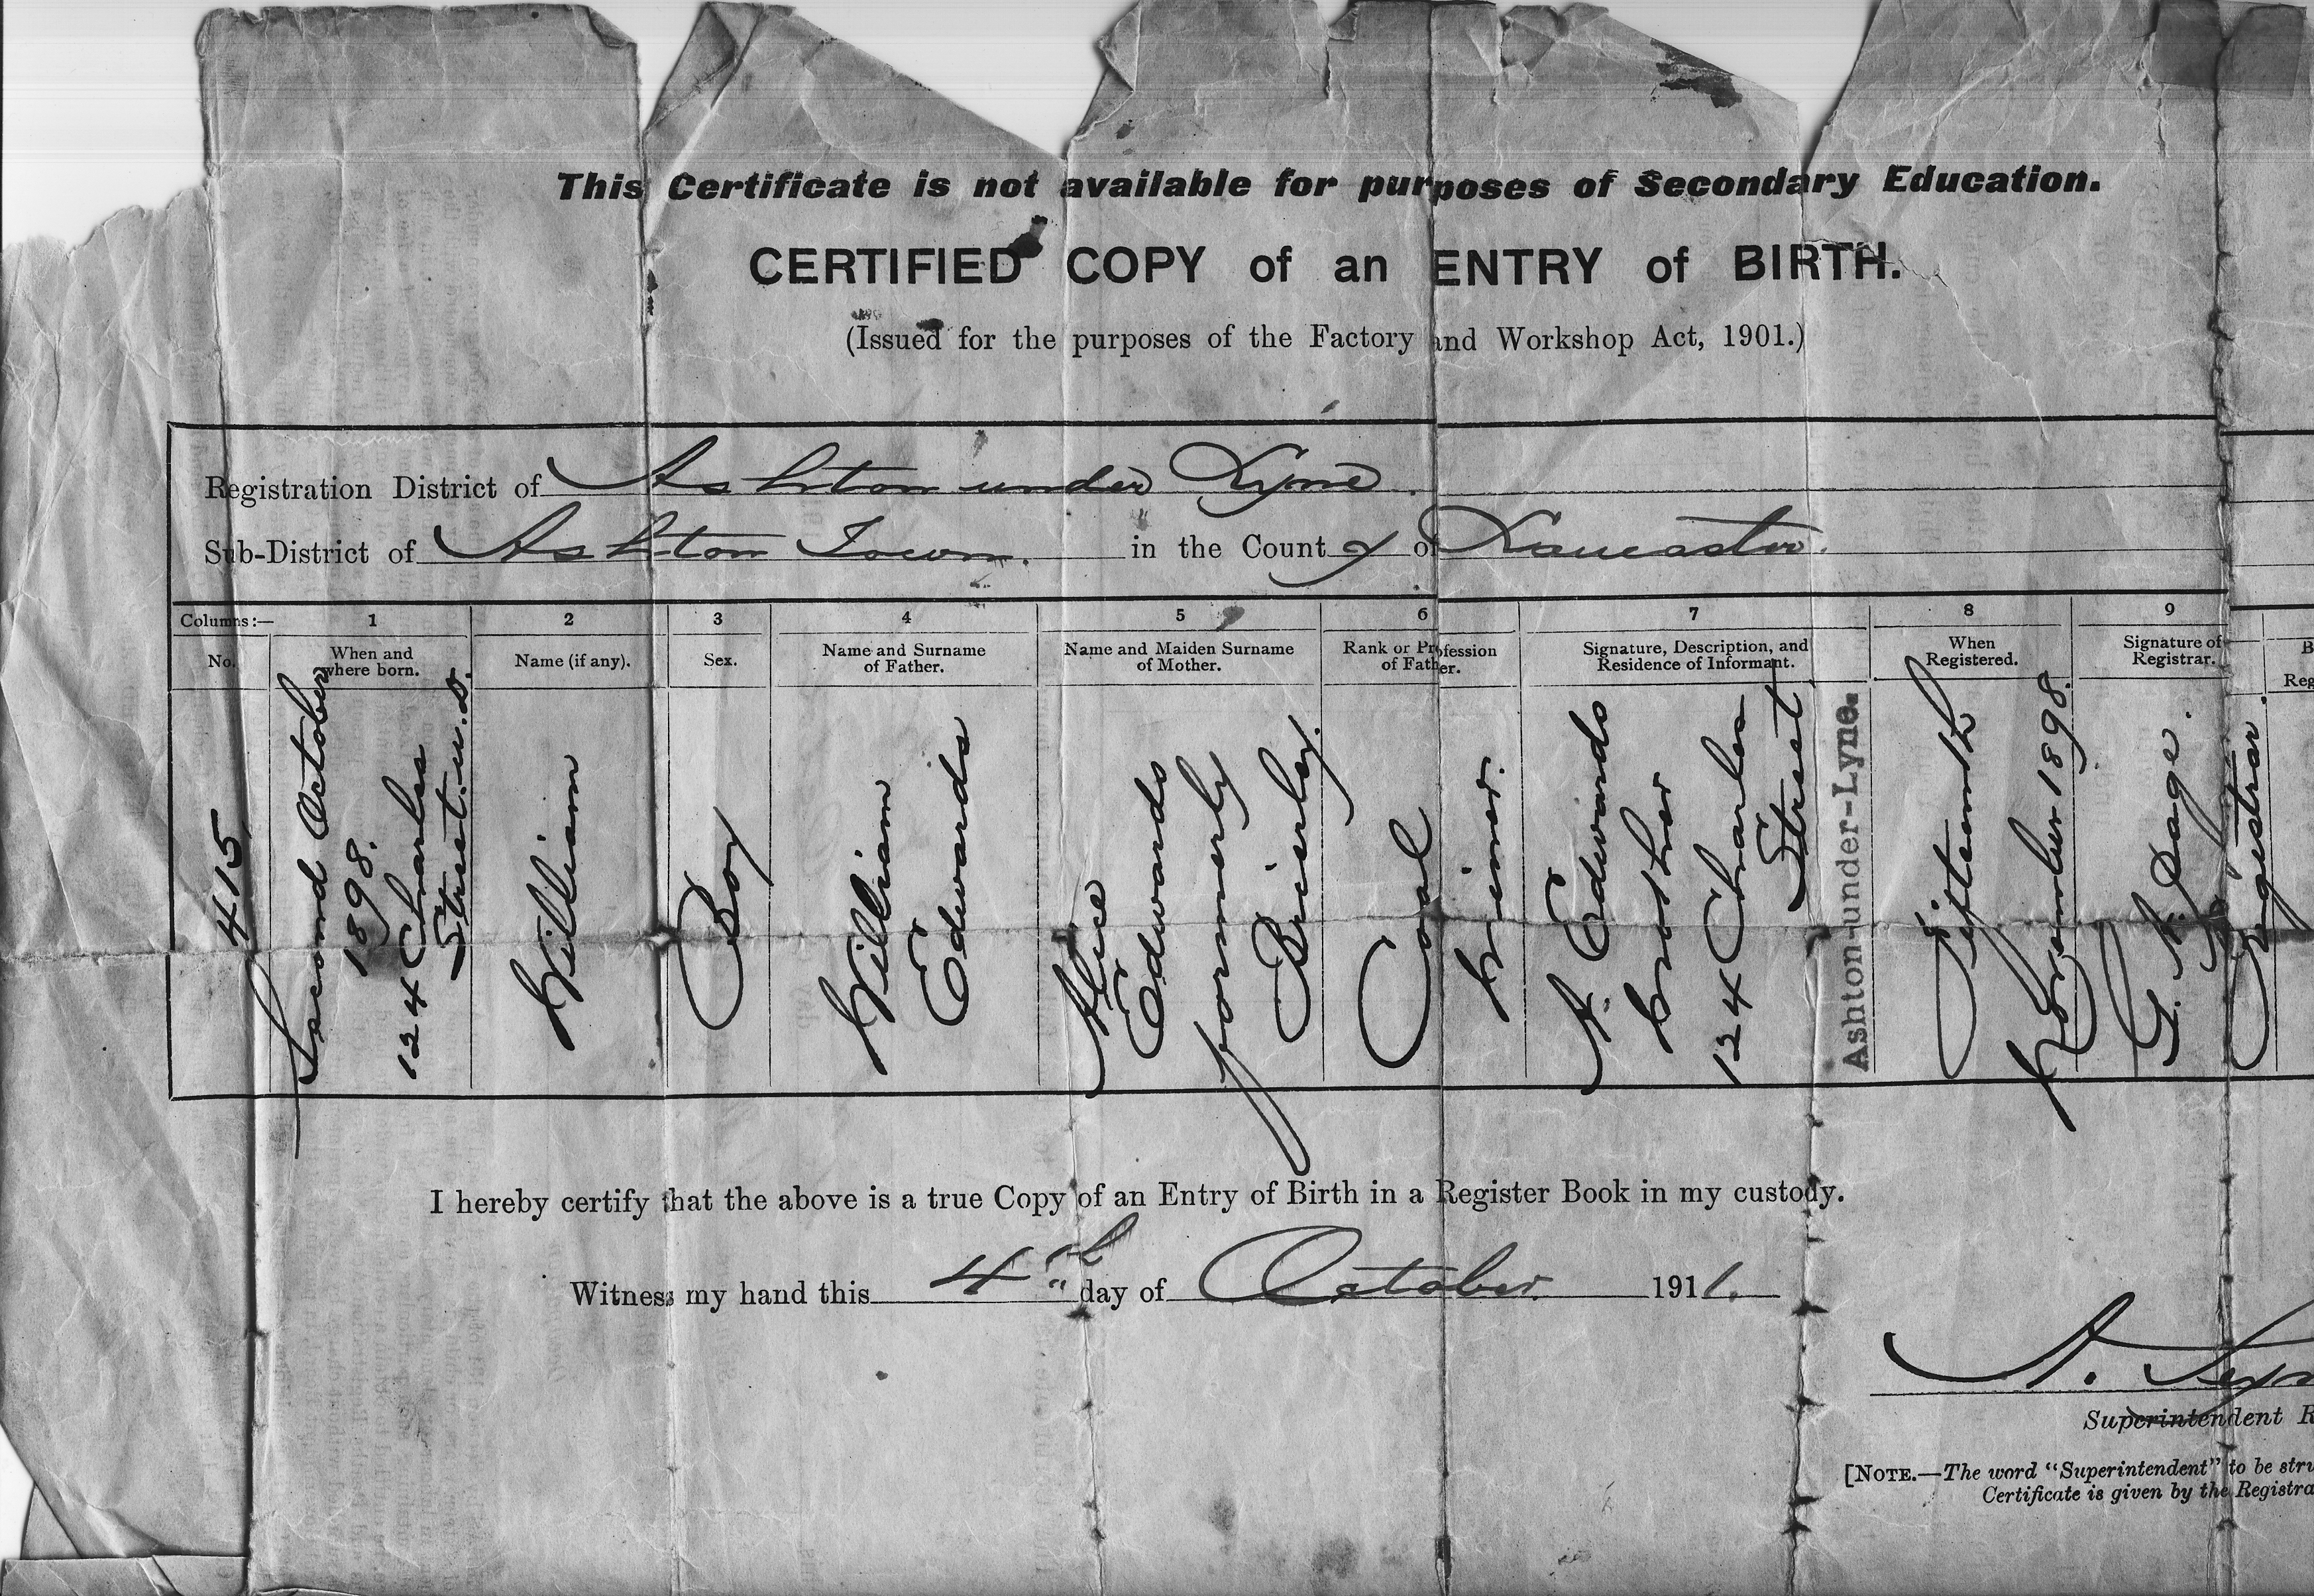 This Certificate is not available for purposes of Secondary Education.
CERTIFIED COPY of an ENTRY of BIRTH.
(Issued for the purposes of the Factory and Workshop Act, 1901.)
Registration District of Ashton under Lyne
Sub-District of Ashton Town. in the County of Lancaster.
Columns:— 1 2 3 4 5 6 7 8 9
No.
When and
where born.
Name (if any).
Sex.
Name and Surname
of Father.
Name and Maiden Surname
of Mother.
Rank or Profession
of Father.
Signature, Description, and
Residence of Informant.
When
Registered.
Signature of
Registrar.
B
Reg
415
Second October
1898.
124 Charles
Street. u.d.
William
Boy
William
Edwards
Alice
Edwards
formerly
Brierley.
Coal
Miner.
A. Edwards
Mother
124 Charles
Street
Ashton-under-Lyne.
Fifteenth
November 1898.
Registrar.
I hereby certify that the above is a true Copy of an Entry of Birth in a Register Book in my custody.
Witness my hand this 4th day of October 1911.
A.
Superintendent R
[NOTE.—The word "Superintendent" to be stru
Certificate is given by the Registra